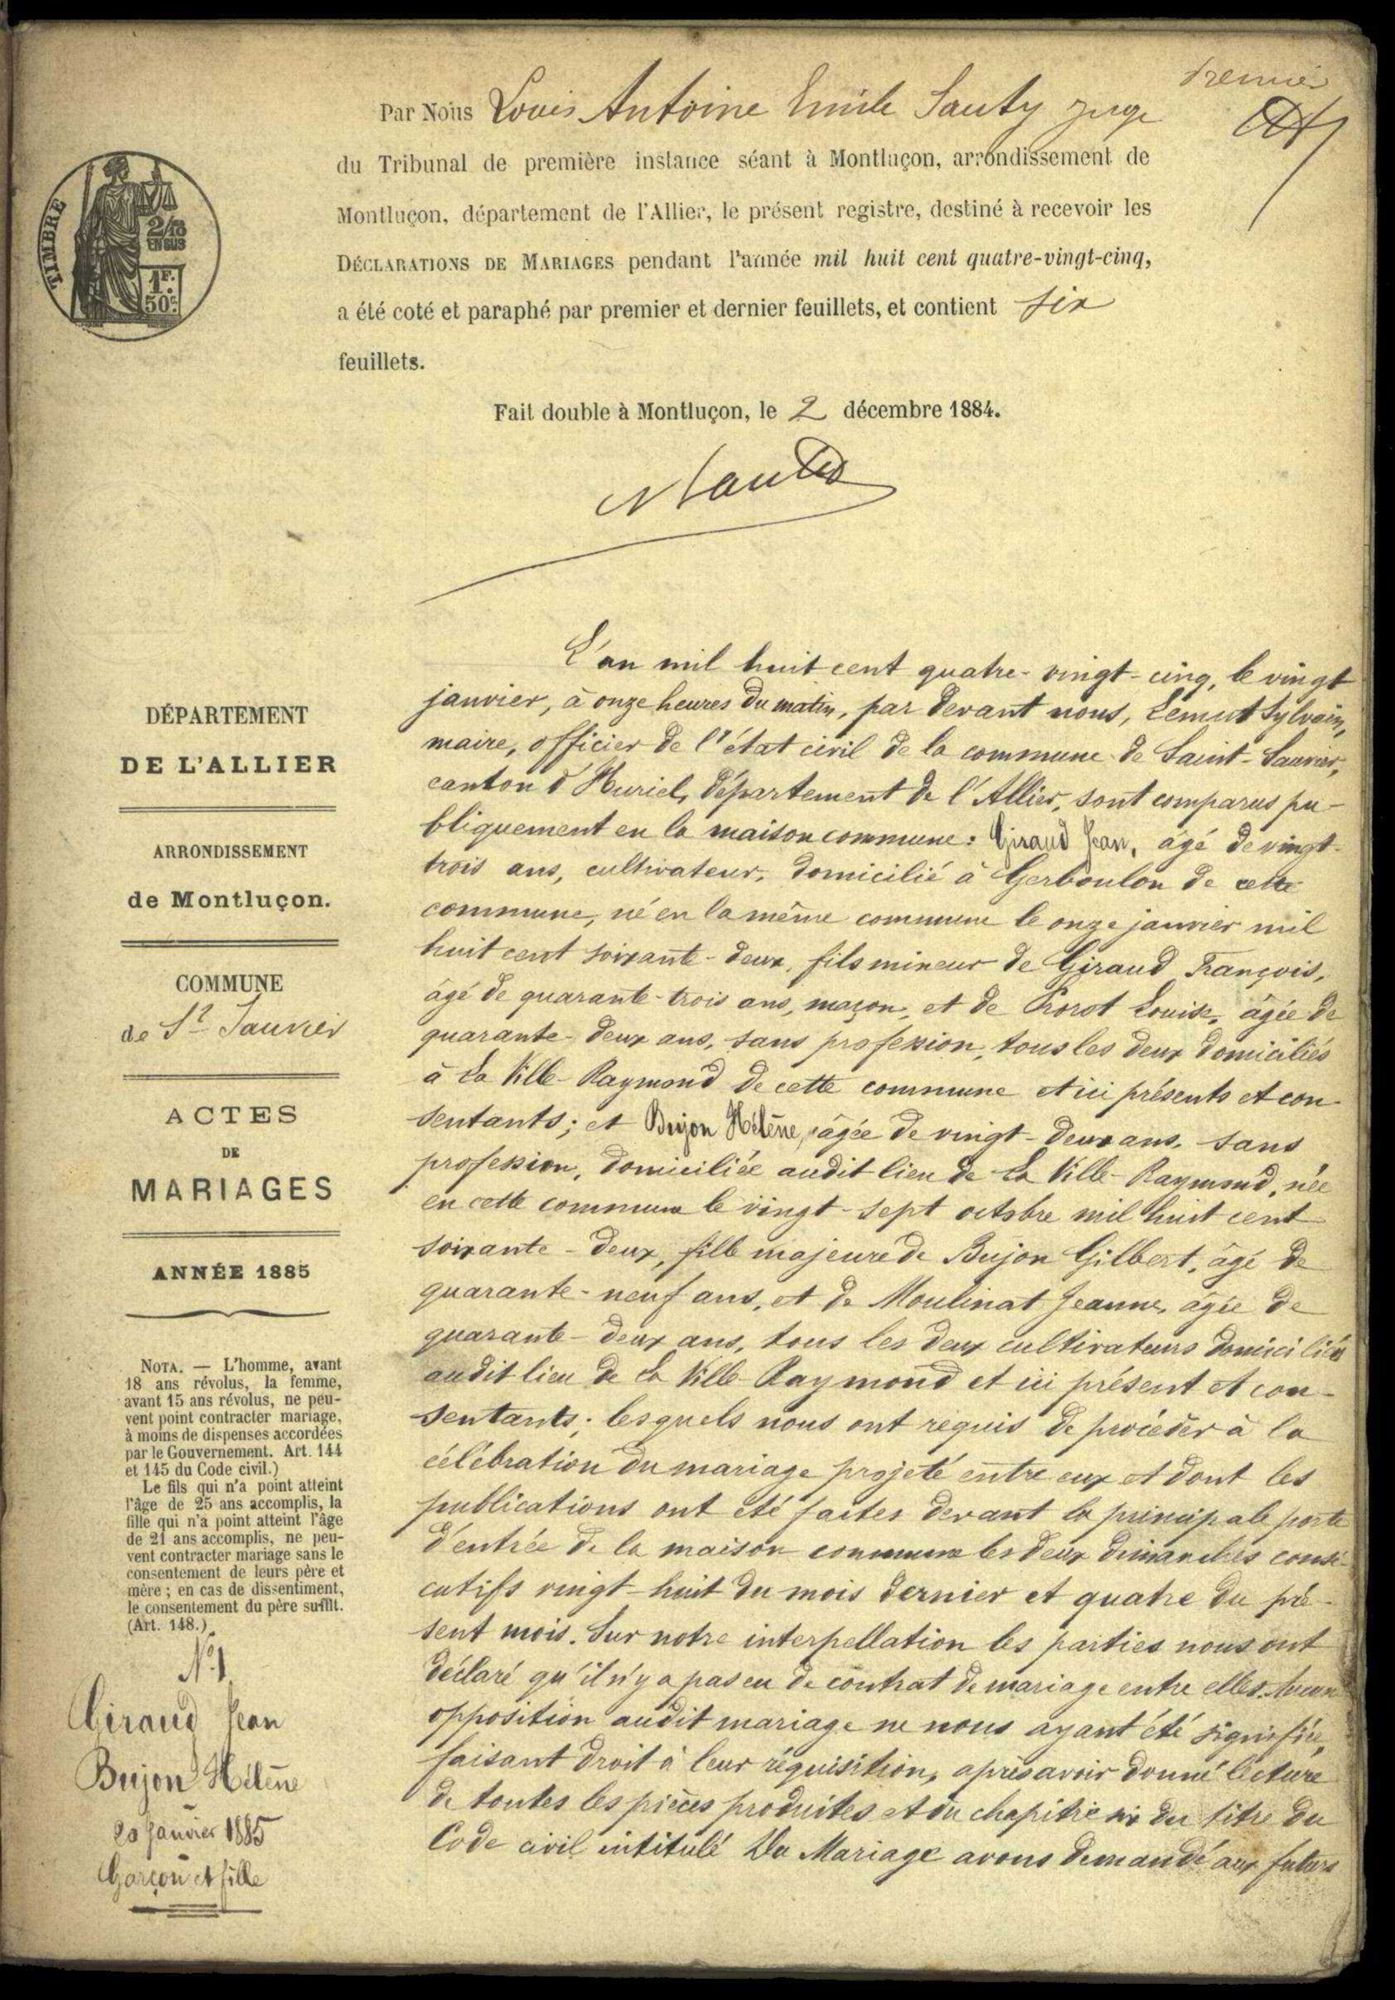 Premier
Par Nous Louis Antoine Emile Sauty juge
du Tribunal de première instance séant à Montluçon, arrondissement de
Montluçon, département de l'Allier, le présent registre, destiné à recevoir les
DÉCLARATIONS DE MARIAGES pendant l'année mil huit cent quatre-vingt-cinq,
a été coté et paraphé par premier et dernier feuillets, et contient six
feuillets.
Fait double à Montluçon, le 2 décembre 1884.
TIMBRE
2/10
EN SUS
1F.
50c.
DÉPARTEMENT
DE L'ALLIER
ARRONDISSEMENT
de Montluçon.
COMMUNE
de St Sauvier
ACTES
DE
MARIAGES
ANNÉE 1885
NOTA. — L'homme, avant
18 ans révolus, la femme,
avant 15 ans révolus, ne peu-
vent point contracter mariage,
à moins de dispenses accordées
par le Gouvernement. Art. 144
et 145 du Code civil.)
Le fils qui n'a point atteint
l'âge de 25 ans accomplis, la
fille qui n'a point atteint l'âge
de 21 ans accomplis, ne peu-
vent contracter mariage sans le
consentement de leurs père et
mère ; en cas de dissentiment,
le consentement du père suffit.
(Art. 148.)
N° 1
Giraud Jean
Bujon Hélène
20 janvier 1885
Garçon et fille
L'an mil huit cent quatre-vingt-cinq, le vingt
janvier, à onze heures du matin, par devant nous, Sylvain,
maire, officier de l'état civil de la commune de Saint-Sauvier,
canton d'Huriel, département de l'Allier, sont comparus pu-
bliquement en la maison commune : Giraud Jean, âgé de vingt-
trois ans, cultivateur, domicilié à Gerboulon de cette
commune, né en la même commune le onze janvier mil
huit cent soixante-deux, fils mineur de Giraud François,
âgé de quarante-trois ans, maçon, et de Louise, âgée de
quarante-deux ans, sans profession, tous les deux domiciliés
à La Ville-Raymond de cette commune et ici présents et con-
sentants ; et Bujon Hélène, âgée de vingt-deux ans, sans
profession, domiciliée audit lieu de La Ville-Raymond, née
en cette commune le vingt-sept octobre mil huit cent
soixante-deux, fille majeure de Bujon Gilbert, âgé de
quarante-neuf ans, et de Moulinat Jeanne, âgée de
quarante-deux ans, tous les deux cultivateurs domiciliés
audit lieu de La Ville-Raymond et ici présent et con-
sentants ; lesquels nous ont requis de procéder à la
célébration du mariage projeté entre eux et dont les
publications ont été faites devant la principale porte
d'entrée de la maison commune les deux dimanches consé-
cutifs vingt-huit du mois dernier et quatre du pré-
sent mois. Sur notre interpellation les parties nous ont
déclaré qu'il n'y a pas eu de contrat de mariage entre elles. Aucune
opposition audit mariage ne nous ayant été signifiée,
faisant droit à leur réquisition, après avoir donné lecture
de toutes les pièces produites et du chapitre six du titre du
Code civil intitulé Du Mariage avons demandé aux futurs